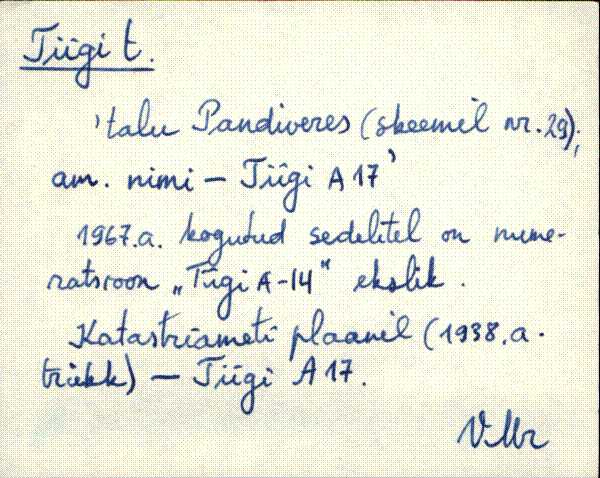 Tiigi t.
'talu Pandiveres (skeemil nr. 29);
am. nimi — Tiigi A 17'
1967.a. kogutud sedelitel on nume-
ratsioon „Tiigi A-14" ekslik.
Katastriameti plaanil (1938.a.
trükk) — Tiigi A 17.